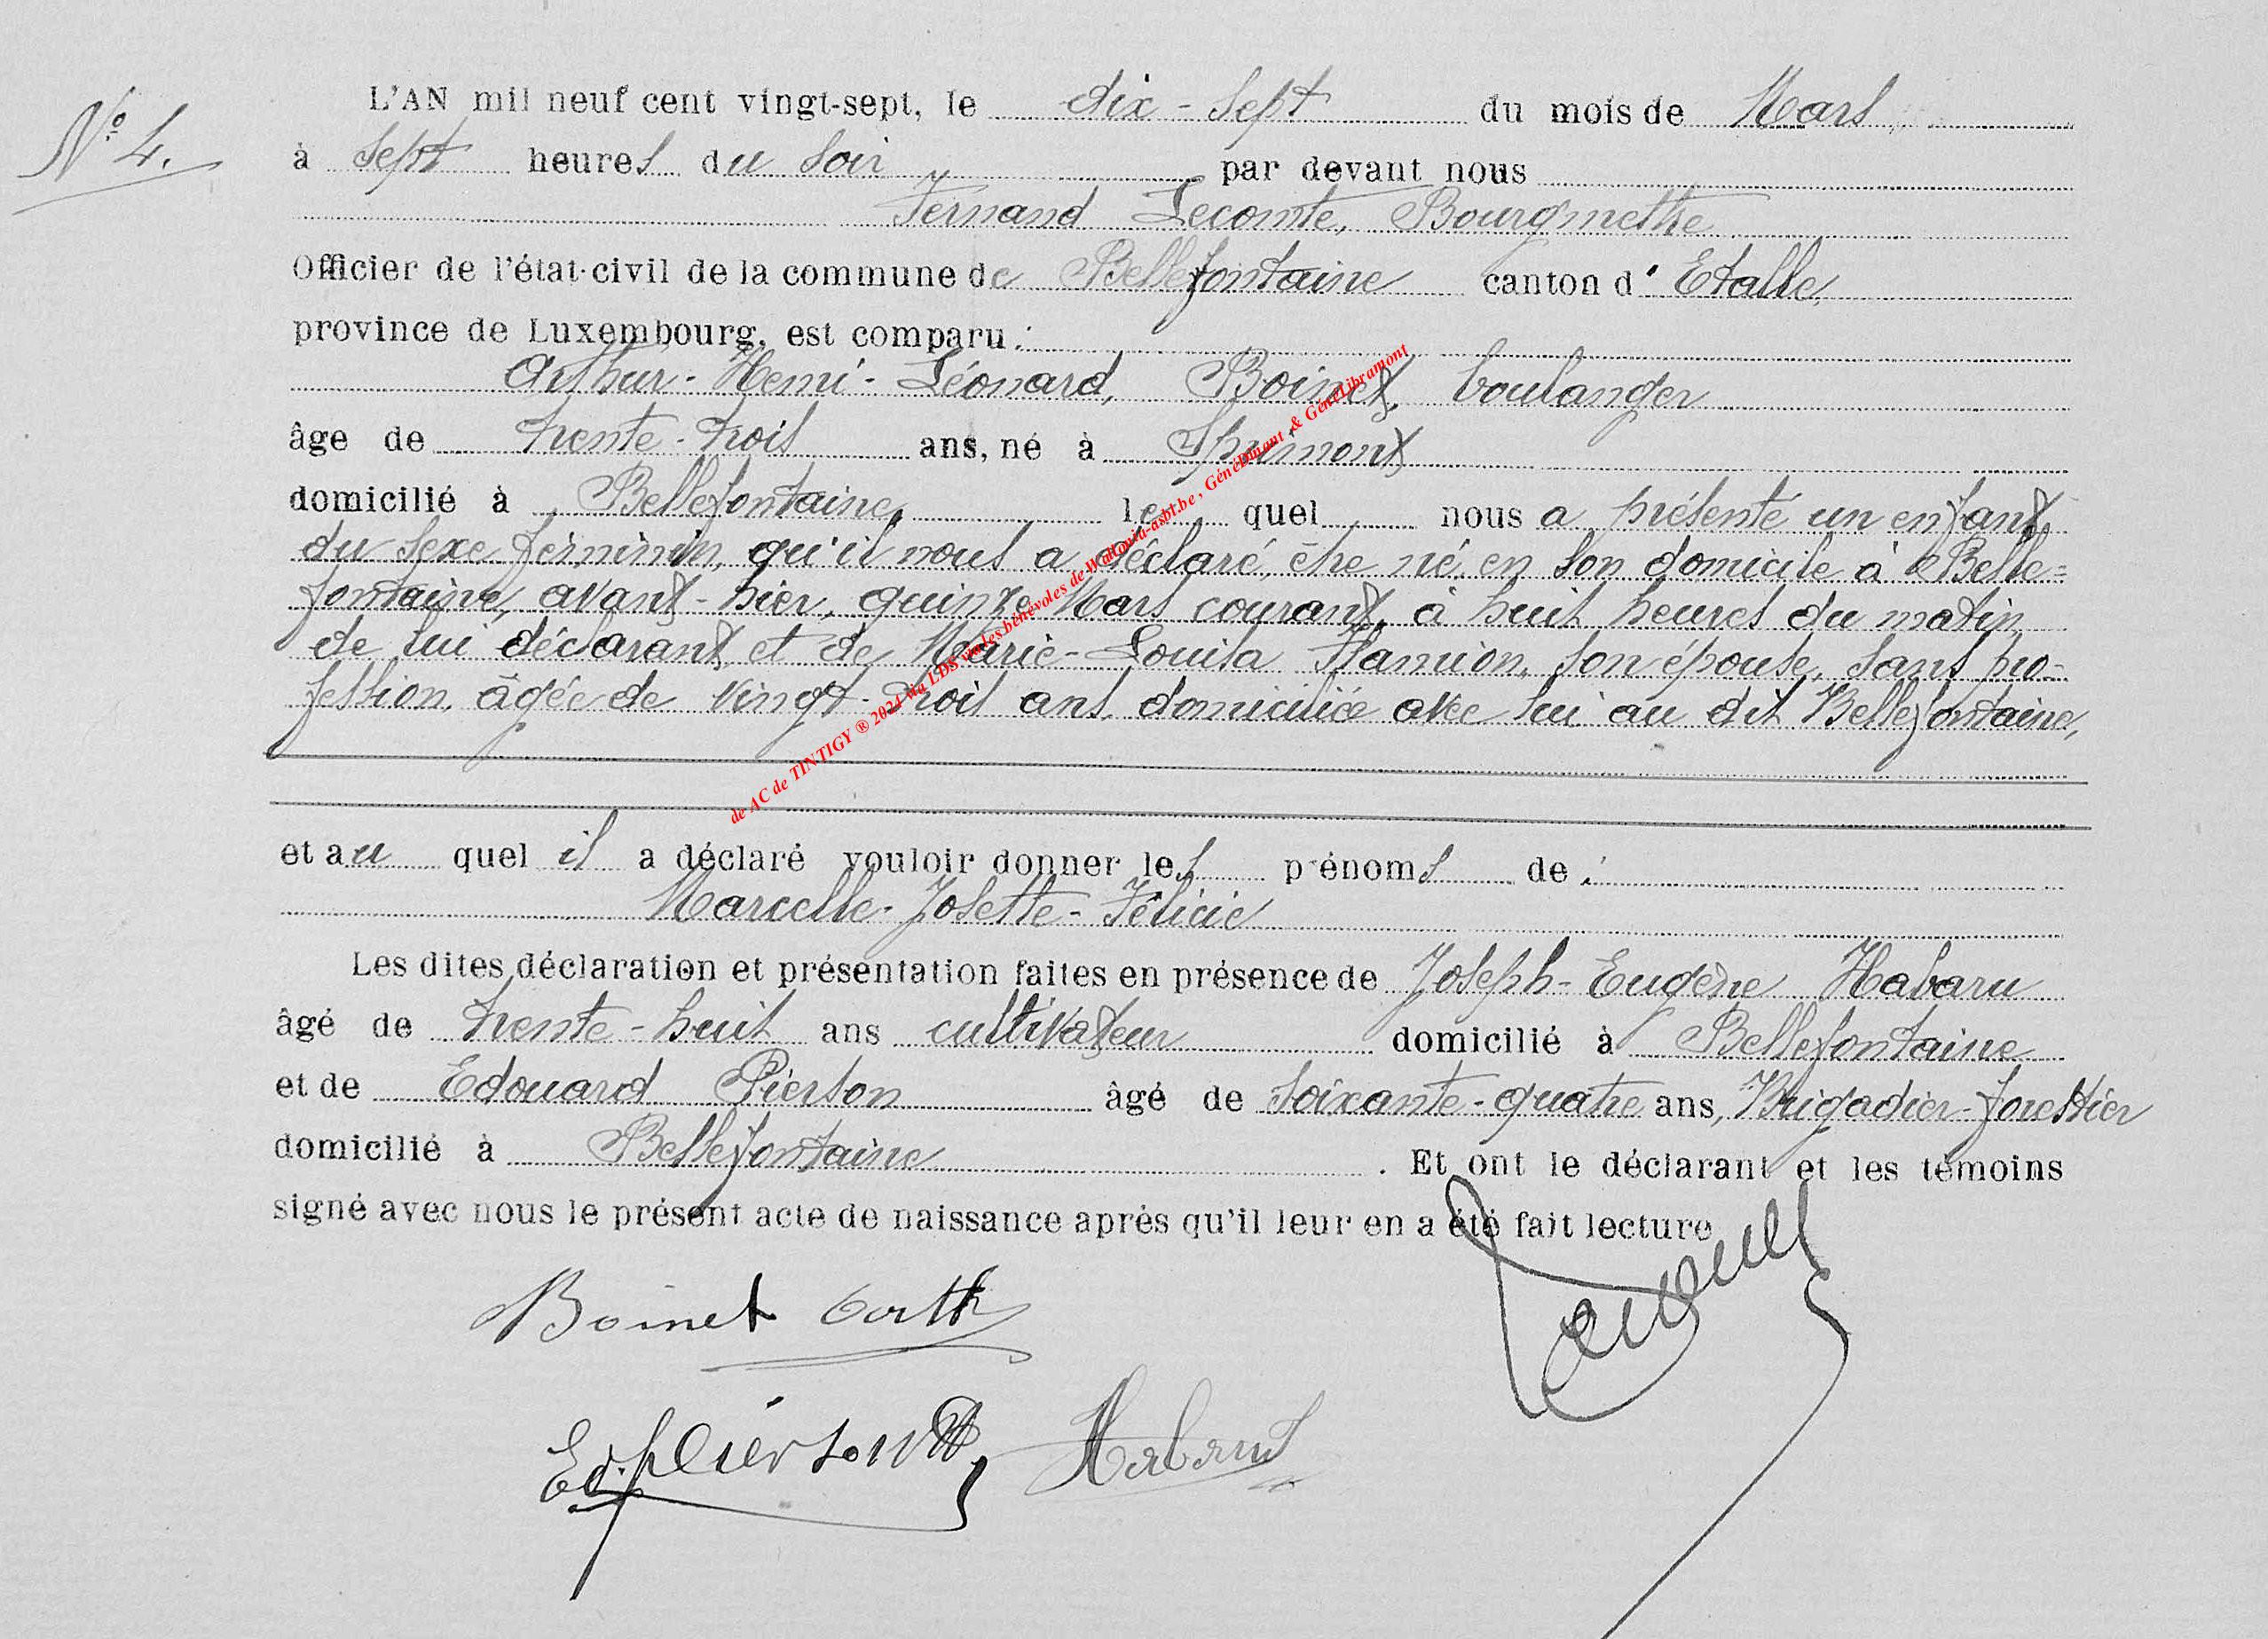 N° 4.
L'AN mil neuf cent vingt-sept, le dix-sept du mois de Mars
à sept heures du soir par devant nous
Fernand Lecomte, Bourgmestre
Officier de l'état-civil de la commune de Bellefontaine canton d'Etalle,
province de Luxembourg, est comparu :
Arthur-Henri-Léonard, Boinet, boulanger
âge de trente-trois ans, né à Sprimont
domicilié à Bellefontaine, le quel nous a présenté un enfant
du sexe féminin, qu'il nous a déclaré, être né, en son domicile à Belle=
fontaine, avant-hier, quinze Mars courant, à huit heures du matin
de lui déclarant, et de Marie-Louisa Hamion, son épouse, sans pro=
fession, âgée de vingt-trois ans, domiciliée avec lui au dit Bellefontaine,
et au quel il a déclaré vouloir donner les prénoms de :
Marcelle-Josette-Félicie
Les dites déclaration et présentation faites en présence de Joseph-Eugène Habaru
âgé de trente-huit ans cultivateur domicilié à Bellefontaine
et de Edouard Pierson âgé de soixante-quatre ans, Brigadier-forestier
domicilié à Bellefontaine . Et ont le déclarant et les témoins
signé avec nous le présent acte de naissance après qu'il leur en a été fait lecture
Boinet Arth
Ed. Pierson Habaru
de AC de TINTIGY ® 2024 via LDS via les bénévoles de Wallonia-asbl.be, GénéDinant & GénéLibramont